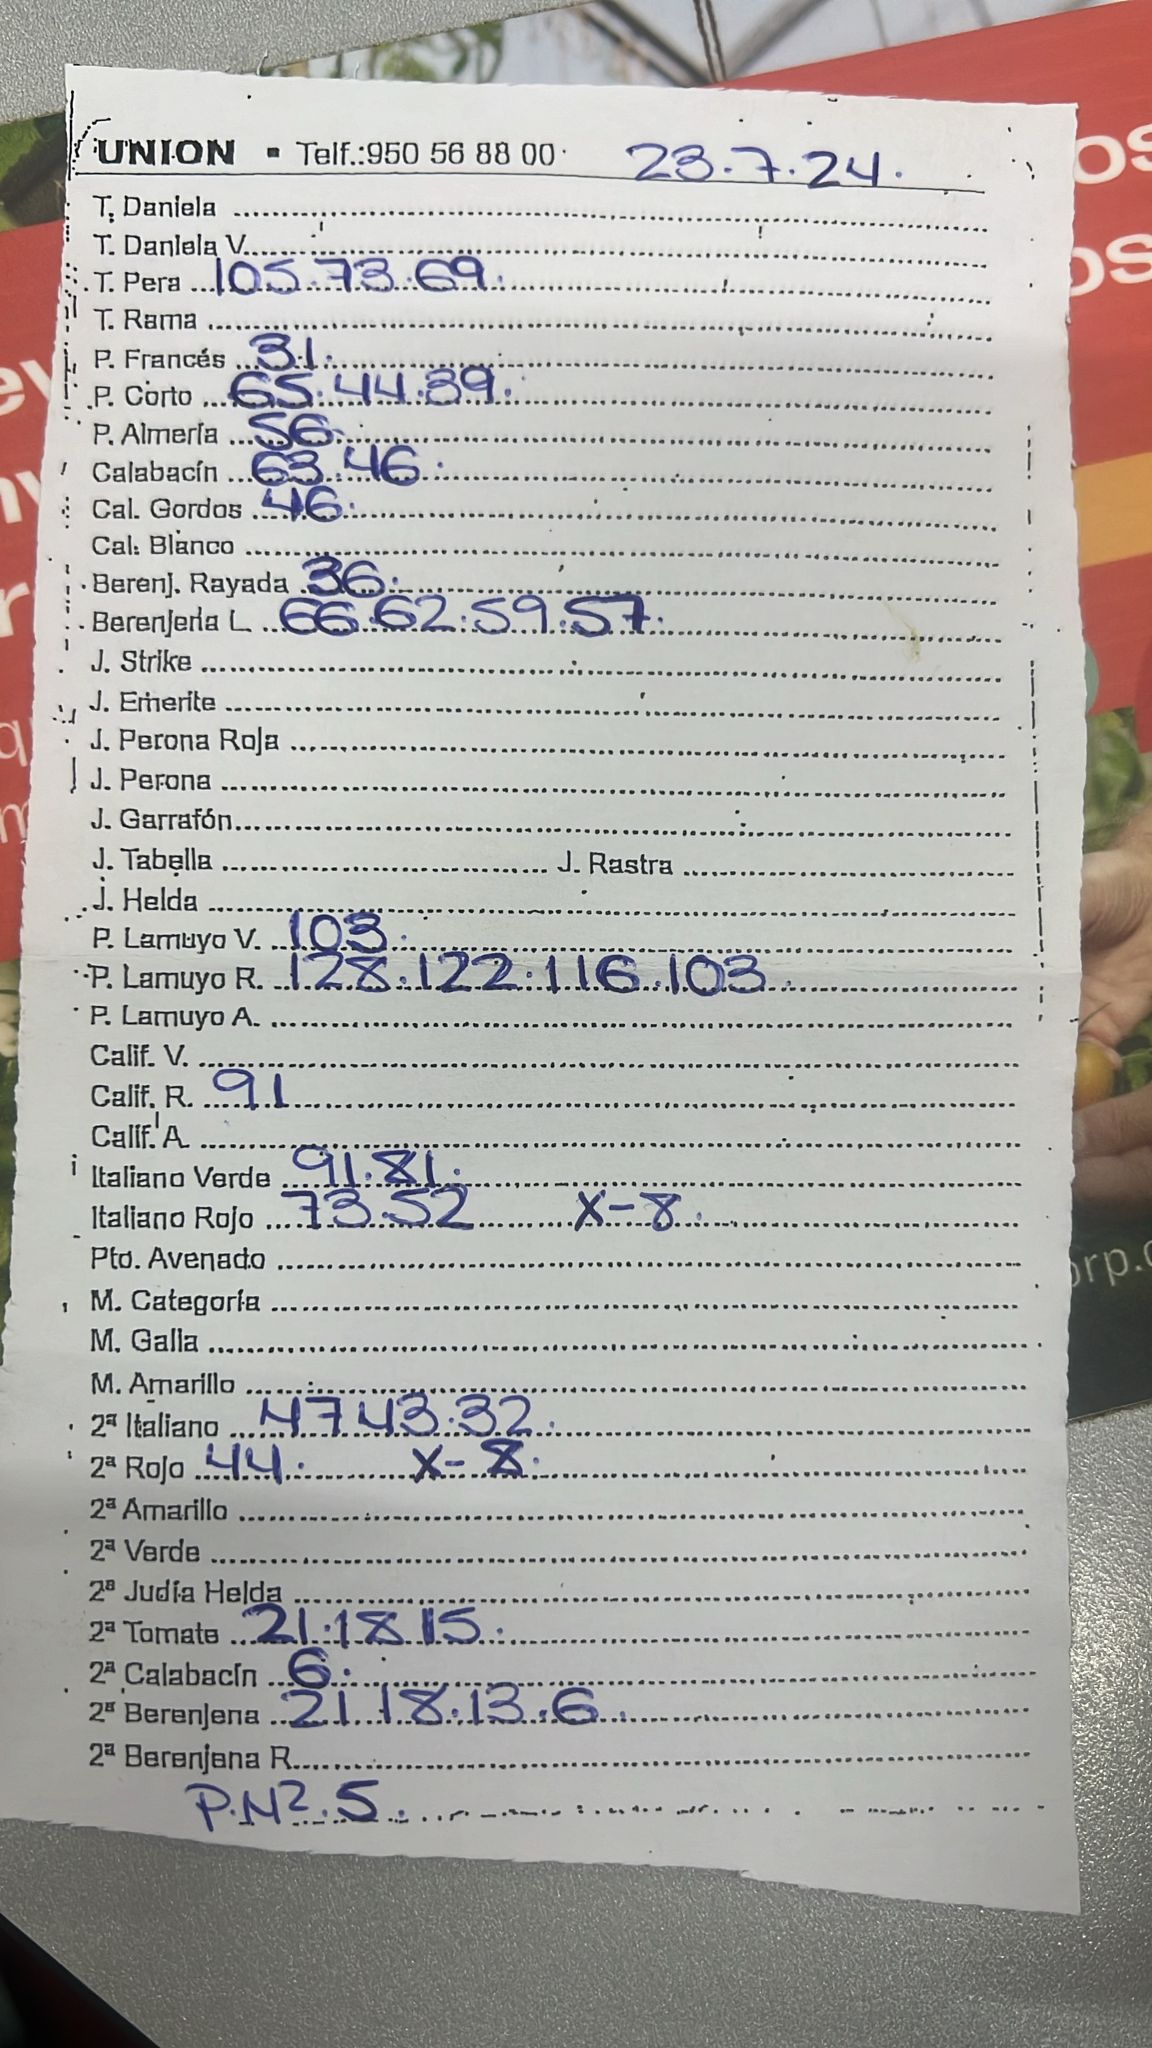 UNION ▪ Telf.:950 56 88 00 23.7.24.
T. Daniela
T. Daniela V.
T. Pera 105.73.69.
T. Rama
P. Francés 31.
P. Corto 65.44.39.
P. Almería 56.
Calabacín 63.46.
Cal. Gordos 46.
Cal. Blanco
Berenj. Rayada 36.
Berenjena L 66.62.59.57.
J. Strike
J. Emerite
J. Perona Roja
J. Perona
J. Garrafón
J. Tabella J. Rastra
J. Helda
P. Lamuyo V. 103.
P. Lamuyo R. 128.122.116.103.
P. Lamuyo A.
Calif. V.
Calif. R. 91
Calif. A.
Italiano Verde 91.81.
Italiano Rojo 73.52 X-8.
Pto. Avenado
M. Categoría
M. Galia
M. Amarillo
2ª Italiano 47 43.32.
2ª Rojo 44. X-8.
2ª Amarillo
2ª Verde
2ª Judía Helda
2ª Tomate 21.18 15.
2ª Calabacín 6.
2ª Berenjena 21.18.13.6.
2ª Berenjena R.
5.
orp.